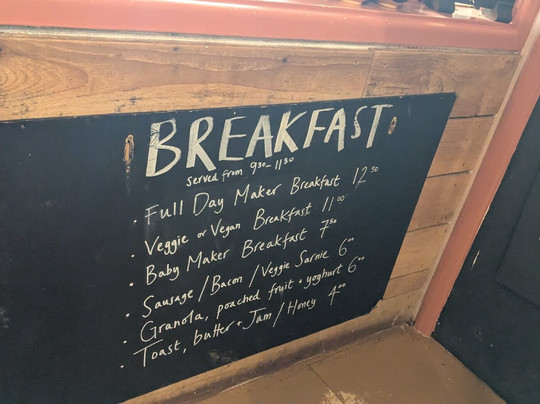 BREAKFAST
served from 9³⁰-11³⁰
· Full Day Maker Breakfast 12⁵⁰
· Veggie or Vegan Breakfast 11⁰⁰
· Baby Maker Breakfast 7⁵⁰
· Sausage/Bacon/Veggie Sarnie 6⁰⁰
· Granola, poached fruit + yoghurt 6⁰⁰
· Toast, butter + Jam/Honey 4⁰⁰